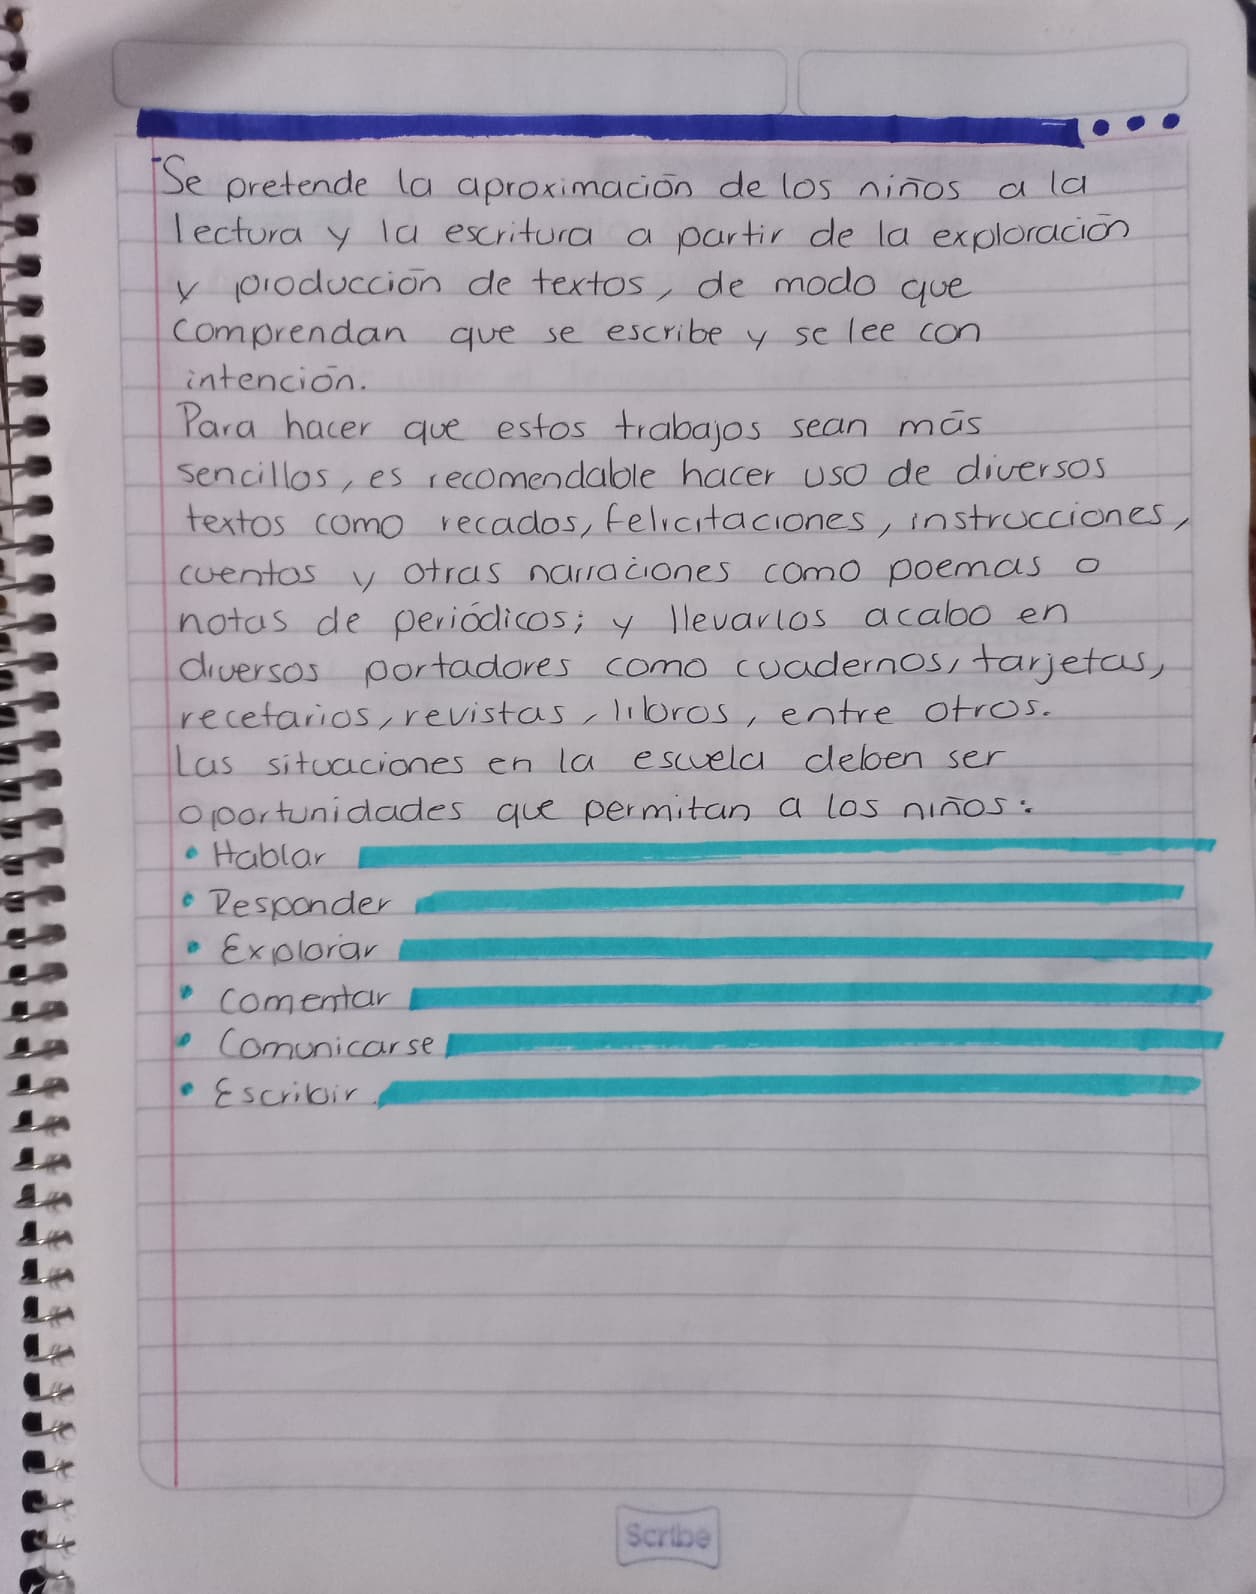 Se pretende la aproximación de los niños a la
lectura y la escritura a partir de la exploración
y producción de textos, de modo que
comprendan que se escribe y se lee con
intención.
Para hacer que estos trabajos sean más
sencillos, es recomendable hacer uso de diversos
textos como recados, felicitaciones, instrucciones,
cuentos y otras narraciones como poemas o
notas de periódicos; y llevarlos acabo en
diversos portadores como cuadernos, tarjetas,
recetarios, revistas, libros, entre otros.
Las situaciones en la escuela deben ser
oportunidades que permitan a los niños:
• Hablar
• Responder
• Explorar
• Comentar
• Comunicarse
• Escribir.
Scribe